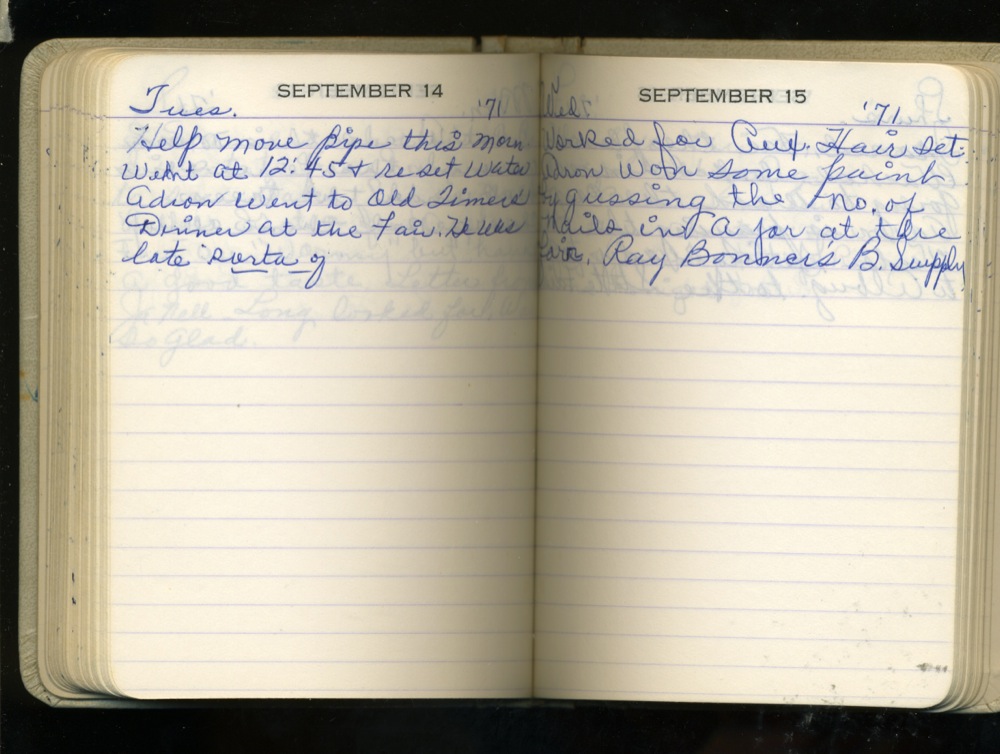 SEPTEMBER 14
Tues. '71
Help move pipe this morn
Went at 12:45 & reset water
Adron went to Old Timers'
Dinner at the Fair. He was
late sorta
SEPTEMBER 15
Wed. '71
Worked for Aux. Hair set.
Adron won some paint
by gussing the no. of
Nails in A jar at the
Fair. Ray Bonner's B. Supply
a good
Long looked for
So glad.